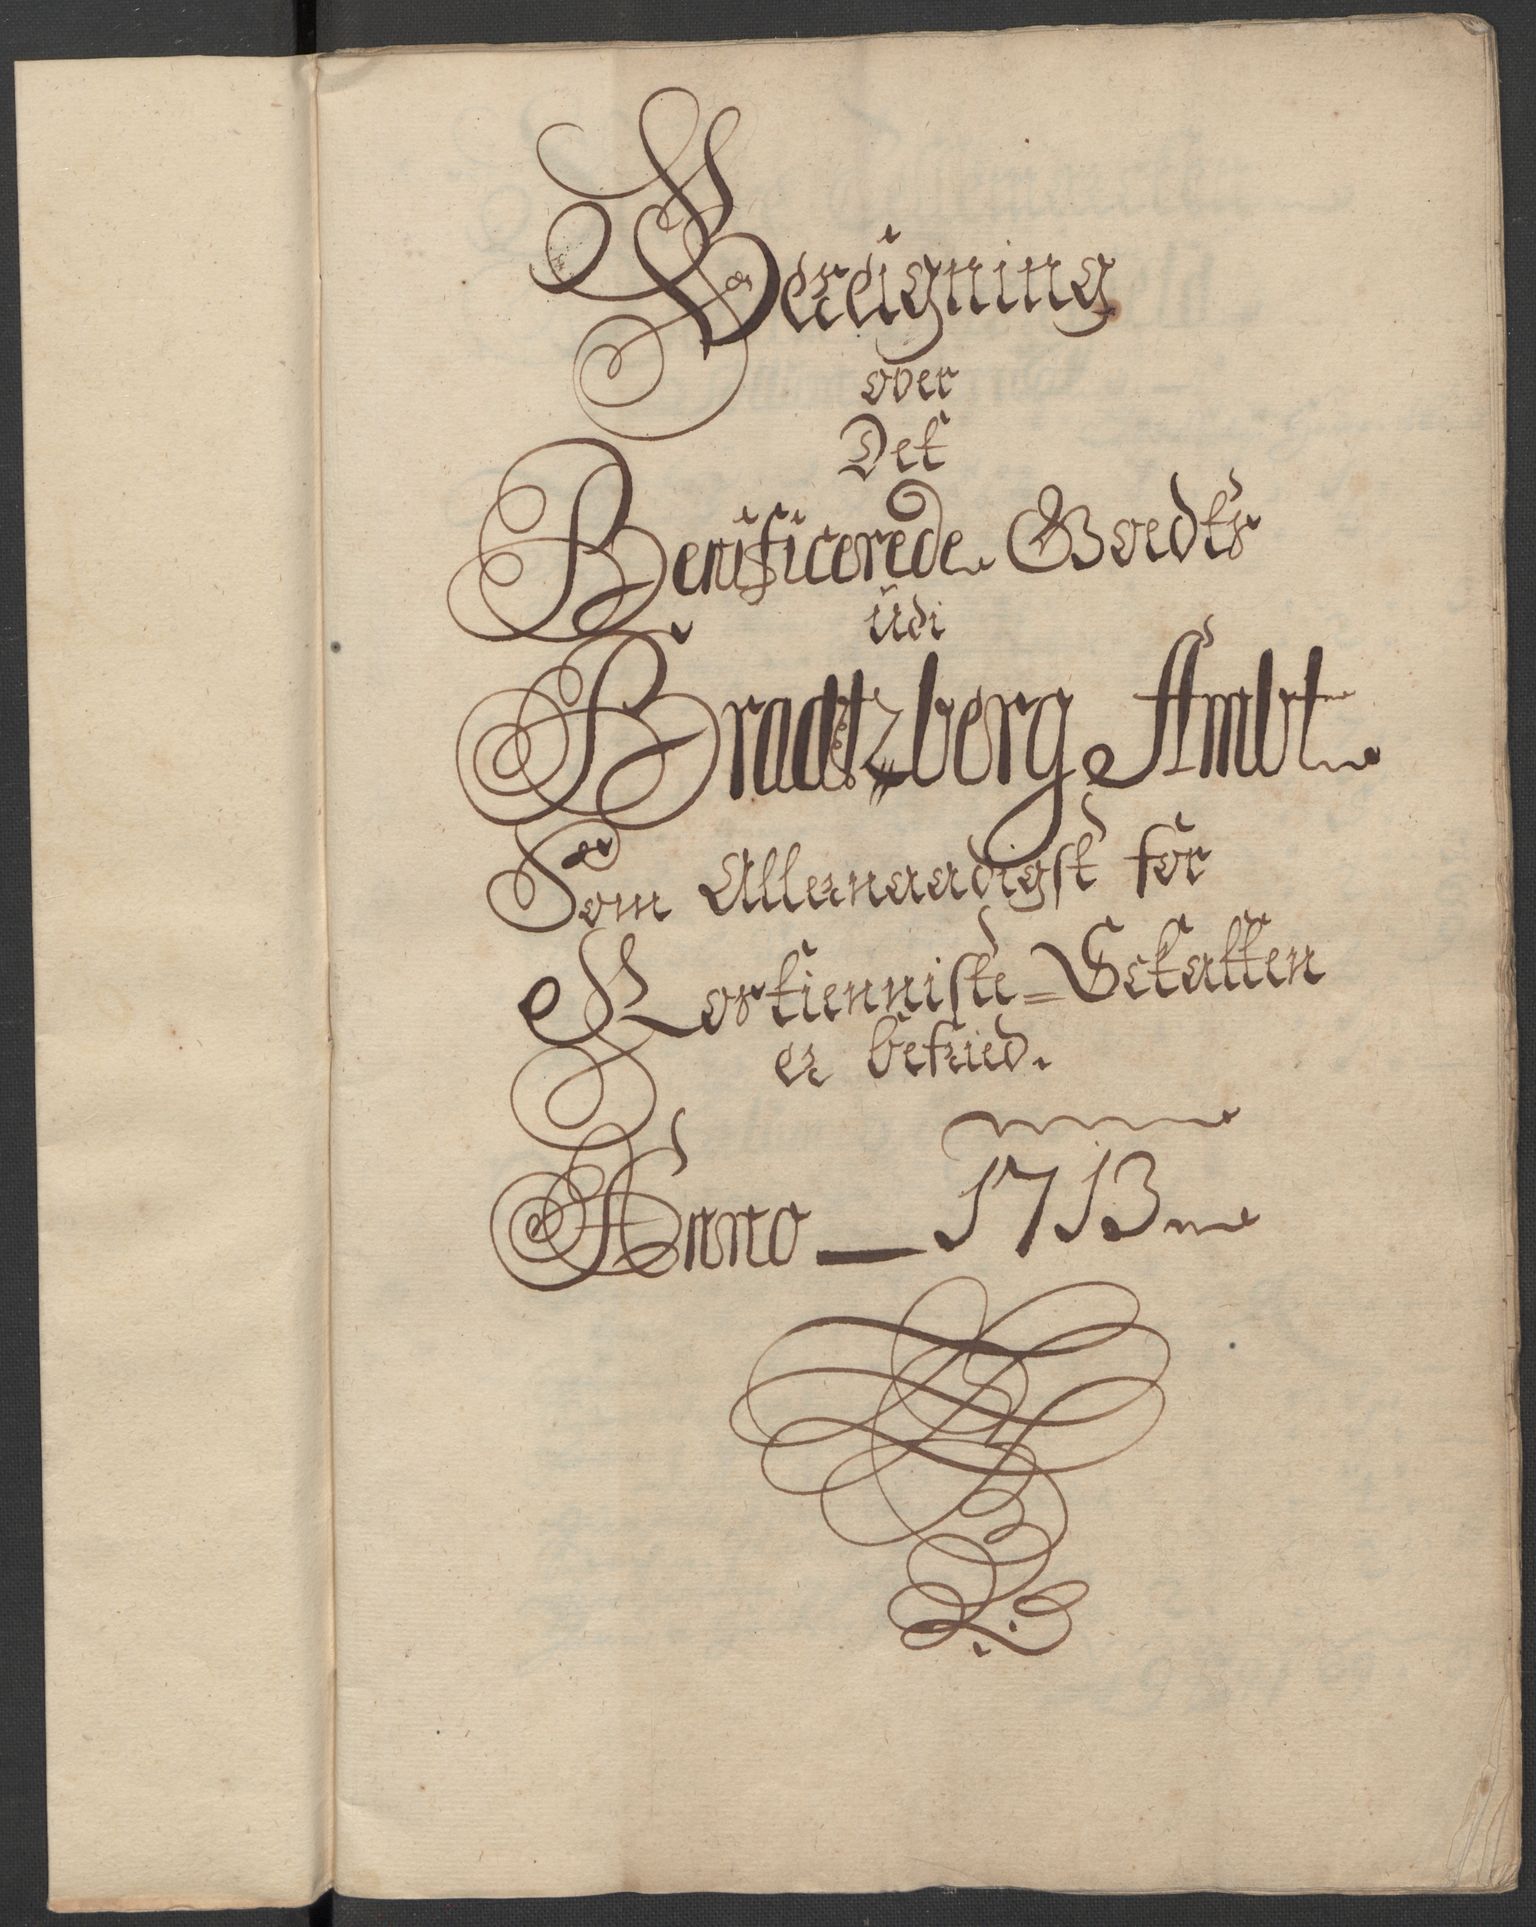 Bereigning
over
Det
Benificerede Goedts
udi
Bradtzberg Ambt
Som Allernaadigst for
Rostienniste-Schatten
er befried.
Anno 1713